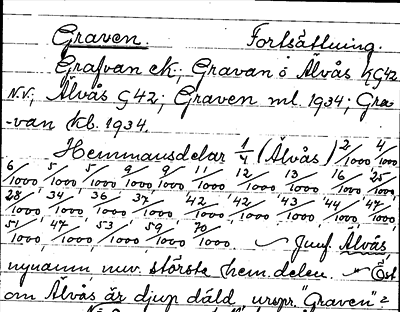 Graven. Fortsättning.
Grafvan ek; Gravan ö Älvås kG42
N.V; Älvås G42; Graven ml. 1934; Gra-
-van kb. 1934.
Hemmansdelar 1/4 (Älvås) 2/1000 4/1000
6/1000, 5/1000, 5/1000, 9/1000, 9/1000, 11/1000, 12/1000, 13/1000, 16/1000, 25/1000,
28/1000, 34/1000, 36/1000, 37/1000, 42/1000, 42/1000, 43/1000, 44/1000, 47/1000,
51/1000, 47/1000, 53/1000, 59/1000, 70/1000. ~ Jmf. Älvås,
nynamn, nuv. största hem.delen. ~ Öst
om Älvås är djup däld, urspr. "Graven"?